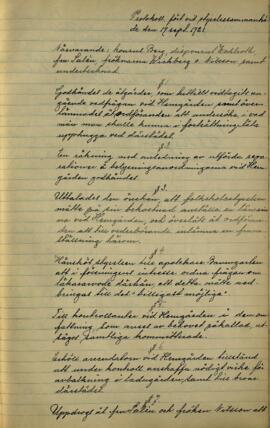 Protokoll, fört vid styrelsesammanträ-
de den 17 sept. 1921.
Närvarande: konsul Berg, disponent
fru Salén, fröknarna Wichberg o. Nilsson samt
undertecknad.
§ 1
Godkändes de åtgärder, som hittills vidtagits an-
gående vedfrågan vid Hemgården samt över-
lämnades åt ordföranden att undersöka, i vad
mån man skulle kunna i fortsättning låta
upphugga ved därstädes.
§ 2
En räkning med anledning av utförda repa-
rationer å belysningsanordningarna vid Hem-
gården godkändes.
§ 3
Uttalades den önskan, att folkskolestyrelsen
måtte på sin bekostnad anställa en lärarin-
na vid Hemgården, och överläts åt ordföran-
den att till vederbörande inlämna en fram-
ställning härom.
§ 4
Hänsköt styrelsen till apotekare Baumgarten
att i föreningens intresse ordna frågan om
läkarevården därhän att detta måtte ned-
bringas till det "billigast möjliga".
§ 5
Till kontrollanter vid Hemgården i den om-
fattning, som anses av behovet påkallad, ut-
sågos samtliga kommitterade.
§ 6
Erhöll arrendatorn vid Hemgården tillstånd
att under kontroll anskaffa nödigt virke för
avbalkning i ladugården, samt till broar
därstädes.
§ 7
Uppdrogs åt fru Salén och fröken Nilsson att